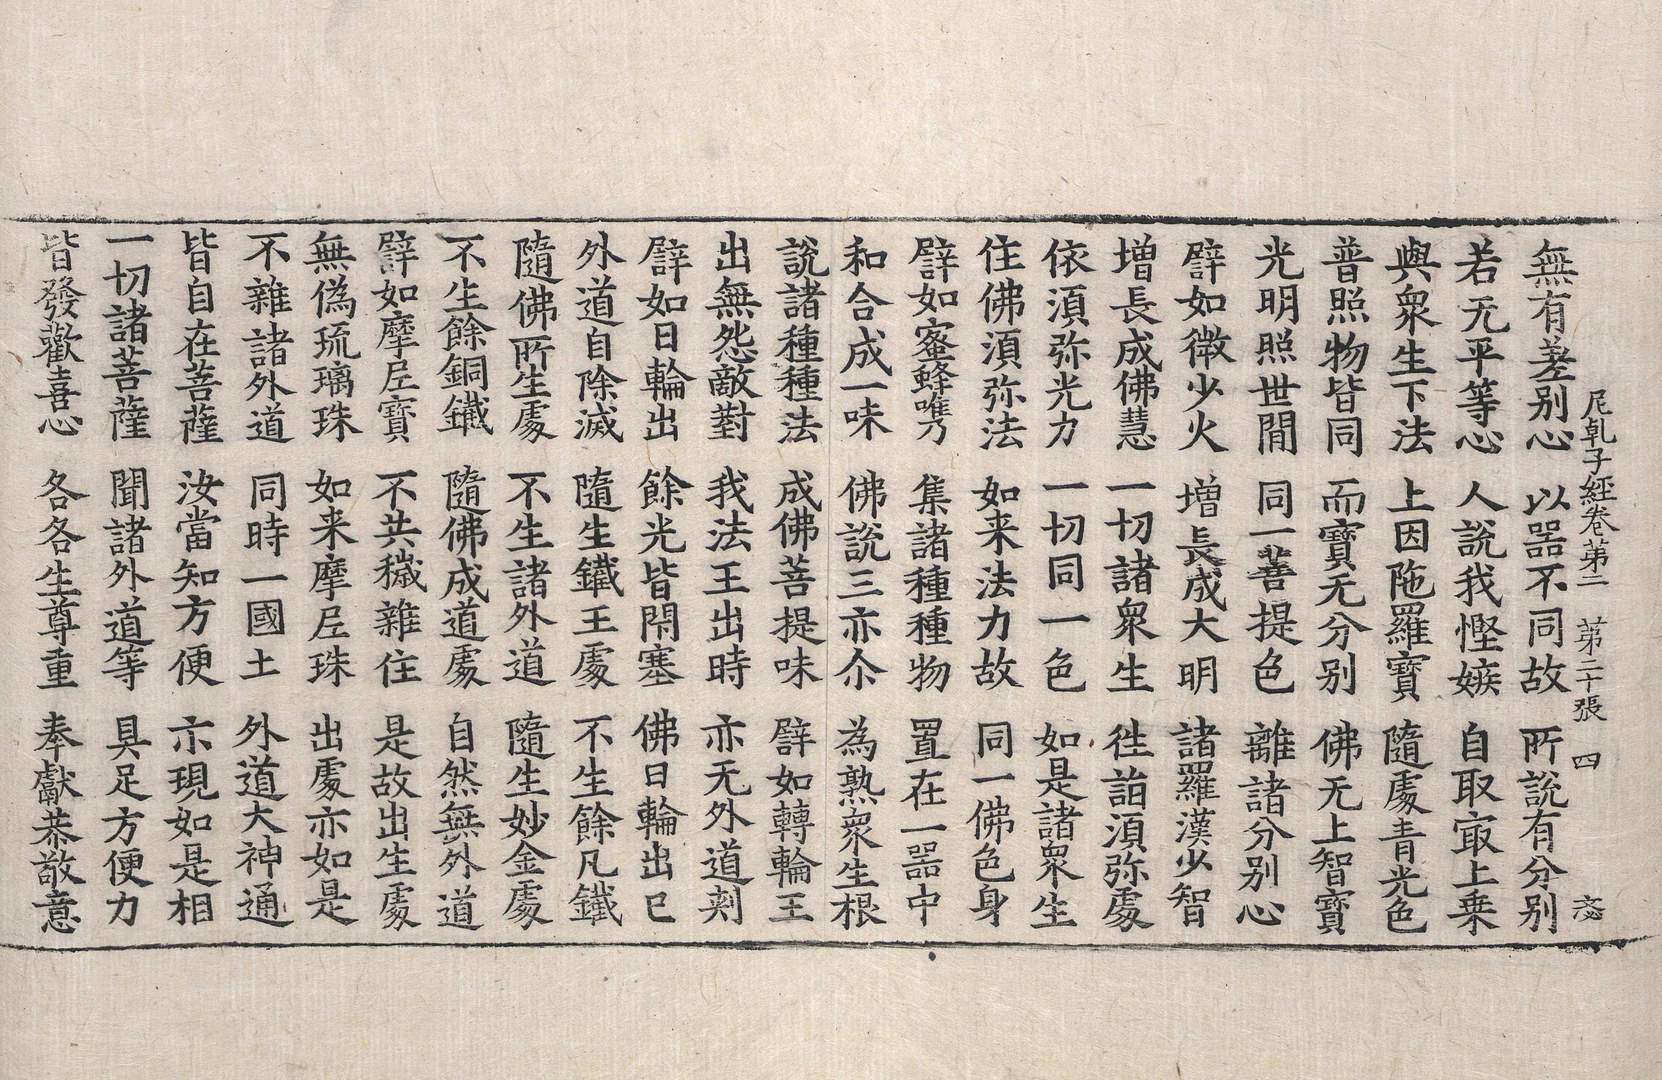 尼乹子經卷第二　第二十張　四　慾
無有差別心　以器不同故　所說有分別
若无平等心　人說我慳嫉　自取㝡上乗
與衆生下法　上因陁羅寶　隨處青光色
普照物皆同　而寶无分別　佛无上智寶
光明照世閒　同一菩提色　離諸分別心
譬如微少火　增長成大明　諸羅漢少智
增長成佛慧　一切諸衆生　徃詣湏弥處
依湏弥光力　一切同一色　如是諸衆生
住佛湏弥法　如来法力故　同一佛色身
譬如蜜蜂唯乃　集諸種種物　置在一器中
和合成一味　佛說三亦尒　為熟衆生根
說諸種種法　成佛菩提味　譬如轉輪王
出無怨敵對　我法王出時　亦无外道剌
譬如日輪出　餘光皆閇塞　佛日輪出已
外道自除滅　隨生鐵王處　不生餘凡鐵
隨佛所生處　不生諸外道　隨生妙金處
不生餘銅鐵　隨佛成道處　自然無外道
譬如摩尼寶　不共穢雜住　是故出生處
無偽琉璃珠　如来摩尼珠　出處亦如是
不雜諸外道　同時一國土　外道大神通
皆自在菩薩　汝當知方便　亦現如是相
一切諸菩薩　聞諸外道等　具足方便力
皆發歡喜心　各各生尊重　奉獻恭敬意